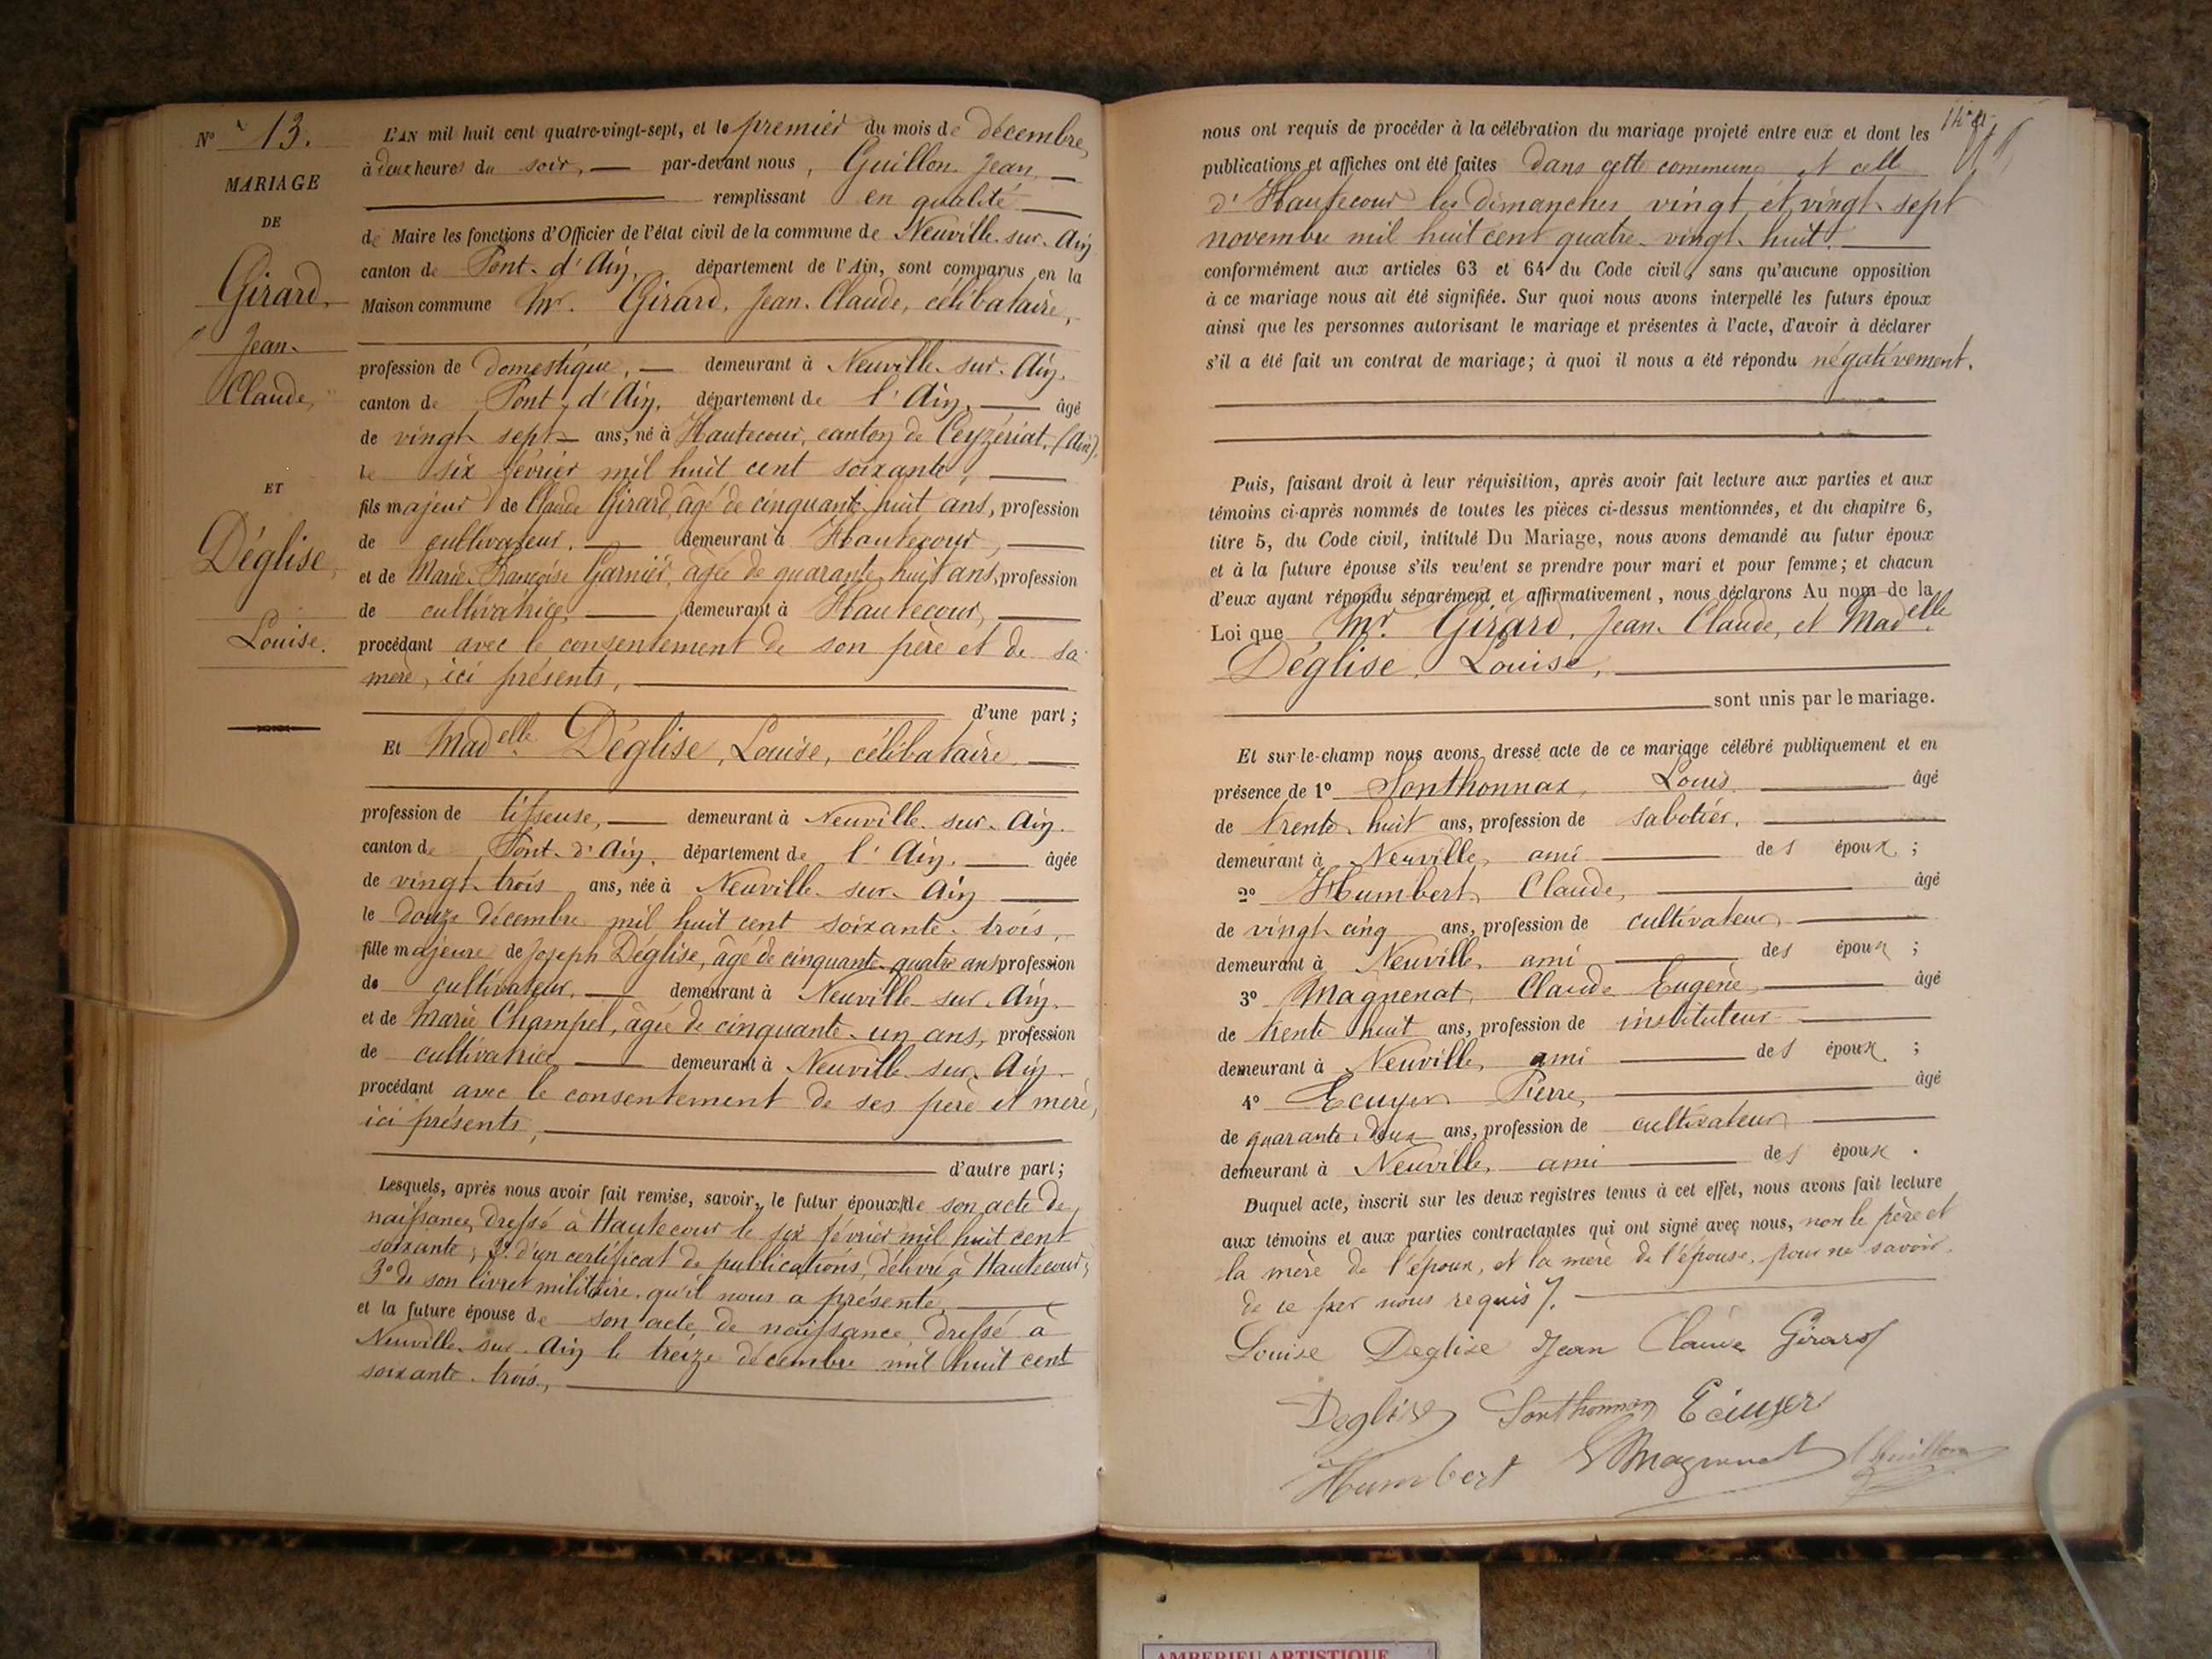 Nº 13.
MARIAGE
DE
Girard,
Jean-
Claude,
ET
Déglise,
Louise.
L'AN mil huit cent quatre-vingt-sept, et le premier du mois de décembre,
à deux heures du soir, — par-devant nous, Guillon Jean, —
remplissant en qualité —
de Maire les fonctions d'Officier de l'état civil de la commune de Neuville-sur-Ain
canton de Pont-d'Ain, département de l'Ain, sont comparus en la
Maison commune Mr. Girard, Jean-Claude, célibataire,
profession de domestique, — demeurant à Neuville-sur-Ain.
canton de Pont-d'Ain, département de l'Ain, — âgé
de vingt-sept — ans, né à Hautecour, canton de Ceyzériat, (Ain),
le six février mil huit cent soixante, —
fils majeur de Claude Girard, âgé de cinquante-huit ans, profession
de cultivateur, — demeurant à Hautecour, —
et de Marie-Françoise Garnier, âgée de quarante-huit ans, profession
de cultivatrice, — demeurant à Hautecour, —
procédant avec le consentement de son père et de sa
mère, ici présents, —
d'une part;
Et Madelle Déglise, Louise, célibataire, —
profession de tisseuse, — demeurant à Neuville-sur-Ain.
canton de Pont-d'Ain, département de l'Ain. — âgée
de vingt-trois ans, née à Neuville-sur-Ain —
le douze décembre mil huit cent soixante-trois,
fille majeure de Joseph Déglise, âgé de cinquante-quatre ans profession
de cultivateur, — demeurant à Neuville-sur-Ain.
et de Marie Champel, âgée de cinquante-un ans, profession
de cultivatrice, — demeurant à Neuville-sur-Ain.
procédant avec le consentement de ses père et mère,
ici présents, —
d'autre part;
Lesquels, après nous avoir fait remise, savoir, le futur époux, de son acte de
naissance, dressé à Hautecour le six février mil huit cent
soixante; 2º d'un certificat de publications, délivré à Hautecour;
3º de son livret militaire, qu'il nous a présenté, —
et la future épouse de son acte de naissance dressé à
Neuville-sur-Ain le treize décembre mil huit cent
soixante-trois, —
nous ont requis de procéder à la célébration du mariage projeté entre eux et dont les
publications et affiches ont été faites dans cette commune et celle
d'Hautecour les dimanches vingt et vingt-sept
novembre mil huit cent quatre-vingt-huit. —
conformément aux articles 63 et 64 du Code civil, sans qu'aucune opposition
à ce mariage nous ait été signifiée. Sur quoi nous avons interpellé les futurs époux
ainsi que les personnes autorisant le mariage et présentes à l'acte, d'avoir à déclarer
s'il a été fait un contrat de mariage; à quoi il nous a été répondu négativement.
Puis, faisant droit à leur réquisition, après avoir fait lecture aux parties et aux
témoins ci-après nommés de toutes les pièces ci-dessus mentionnées, et du chapitre 6,
titre 5, du Code civil, intitulé Du Mariage, nous avons demandé au futur époux
et à la future épouse s'ils veulent se prendre pour mari et pour femme; et chacun
d'eux ayant répondu séparément et affirmativement, nous déclarons Au nom de la
Loi que Mr. Girard, Jean-Claude, et Madelle
Déglise, Louise, —
sont unis par le mariage.
Et sur-le-champ nous avons dressé acte de ce mariage célébré publiquement et en
présence de 1º Sonthonnax, Louis, — âgé
de trente-huit ans, profession de sabotier, —
demeurant à Neuville, ami — des époux;
2º Humbert, Claude, — âgé
de vingt-cinq ans, profession de cultivateur, —
demeurant à Neuville, ami — des époux;
3º Magnenat, Claude Eugène, — âgé
de trente-huit ans, profession de instituteur —
demeurant à Neuville, ami — des époux;
4º Ecuyer Pierre, — âgé
de quarante-deux ans, profession de cultivateur, —
demeurant à Neuville, ami — des époux.
Duquel acte, inscrit sur les deux registres tenus à cet effet, nous avons fait lecture
aux témoins et aux parties contractantes qui ont signé avec nous, non le père et
la mère de l'époux, et la mère de l'épouse, pour ne savoir,
de ce par nous requis. —
Louise Déglise Jean Claude Girard
Deglise Sonthonnax Ecuyer
Humbert Magnenat Guillon
AMBERIEU ARTISTIQUE